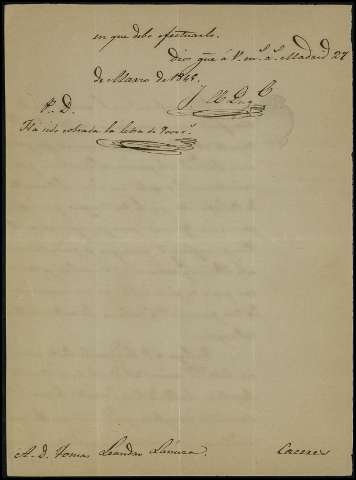 en que debe efectuarlo.
Dios gue á V. ms. as. Madrid 27
de Marzo de 1848.
P. D.
Ha sido cobrada la letra de
A. D. Tomas Leandro
Caceres